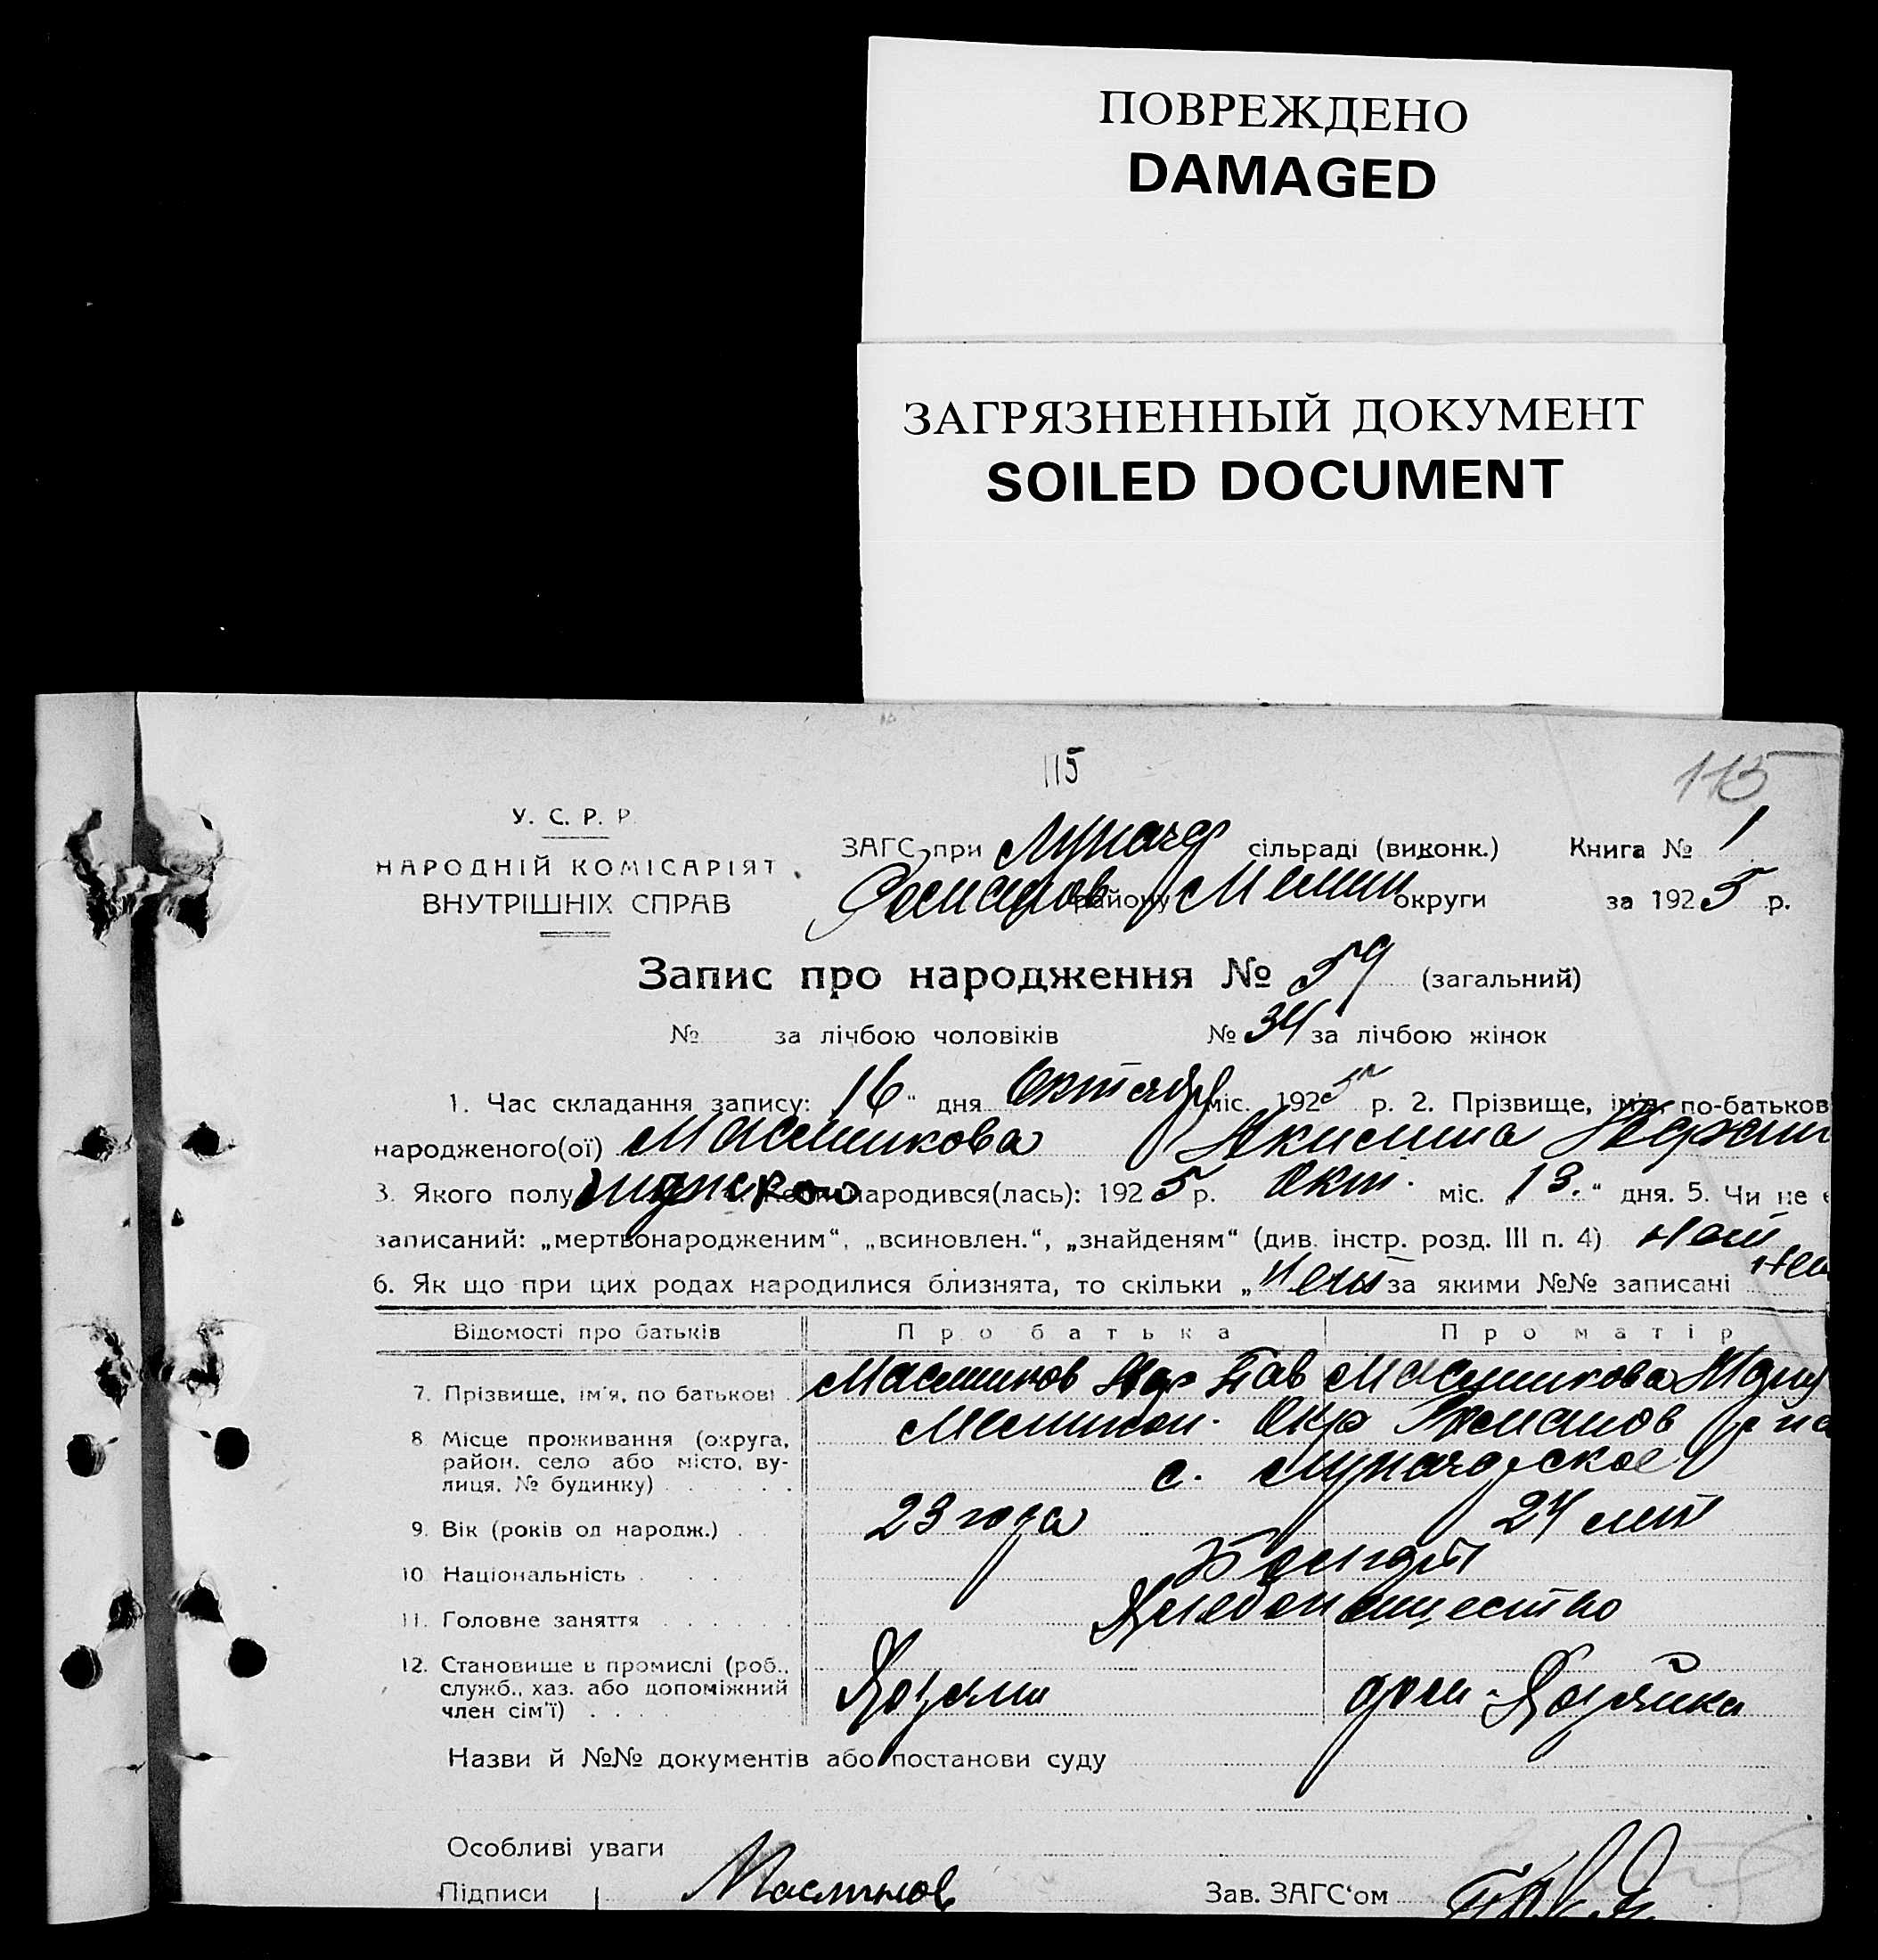 ПОВРЕЖДЕНО
DAMAGED
ЗАГРЯЗНЕННЫЙ ДОКУМЕНТ
SOILED DOCUMENT
115
115
У. С. Р. Р.
НАРОДНІЙ КОМІСАРІЯТ
ВНУТРІШНІХ СПРАВ
ЗАГС при Луначар сільраді (виконк.) Книга № 1
Романов району Мелит округи за 1925 р.
Запис про народження № 59 (загальний)
№ за лічбою чоловіків № 34 за лічбою жінок
1. Час складання запису: 16 " дня Октября міс. 1925 р. 2. Прізвище, ім'я, по-батьков
народженого(ої) Масликова Акилина
3. Якого полу женского народився(лась): 1925 р. Окт. міс. „ 13. " дня. 5. Чи не є
записаний: „мертвонародженим", „всиновлен.", „знайденям" (див. інстр. розд. III п. 4) нет
6. Як що при цих родах народилися близнята, то скільки „ нет за якими №№ записані нет
Відомості про батьків Про батька Про матір
7. Прізвище, ім'я, по батькові Масликов Пав Масликова
8 Місце проживання (округа, район, село або місто, вулиця, № будинку) Мелитоп. Окр Романов
с. Луначарское
9. Вік (років од народж.) 23 года 24 лет
10 Національність
11. Головне заняття Хлебопашество
12. Становище в промислі (роб., служб., хаз. або допоміжний член сім'ї) Хозяин дом-Хозяйка
Назви й №№ документів або постанови суду
Особливі уваги
Підписи Масликов Зав. ЗАГС'ом